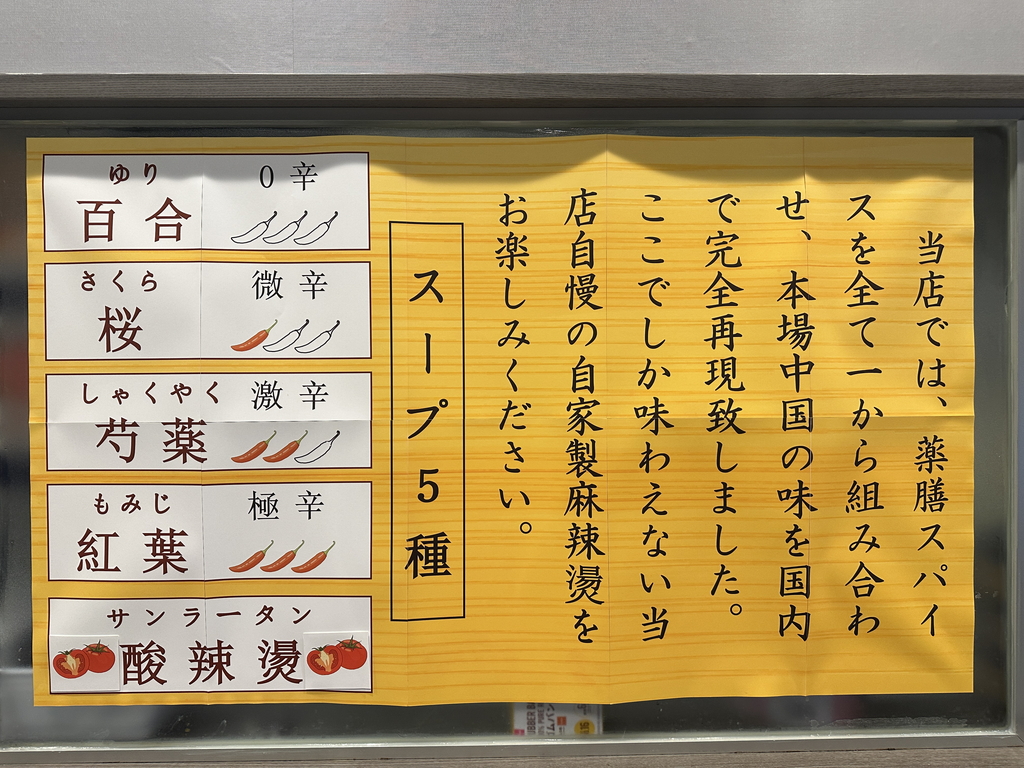 当店では、薬膳スパイ
スを全て一から組み合わ
せ、本場中国の味を国内
で完全再現致しました。
ここでしか味わえない当
店自慢の自家製麻辣燙を
お楽しみください。
スープ5種
ゆり
百合
0辛
さくら
桜
微辛
しゃくやく
芍薬
激辛
もみじ
紅葉
極辛
サンラータン
酸辣燙